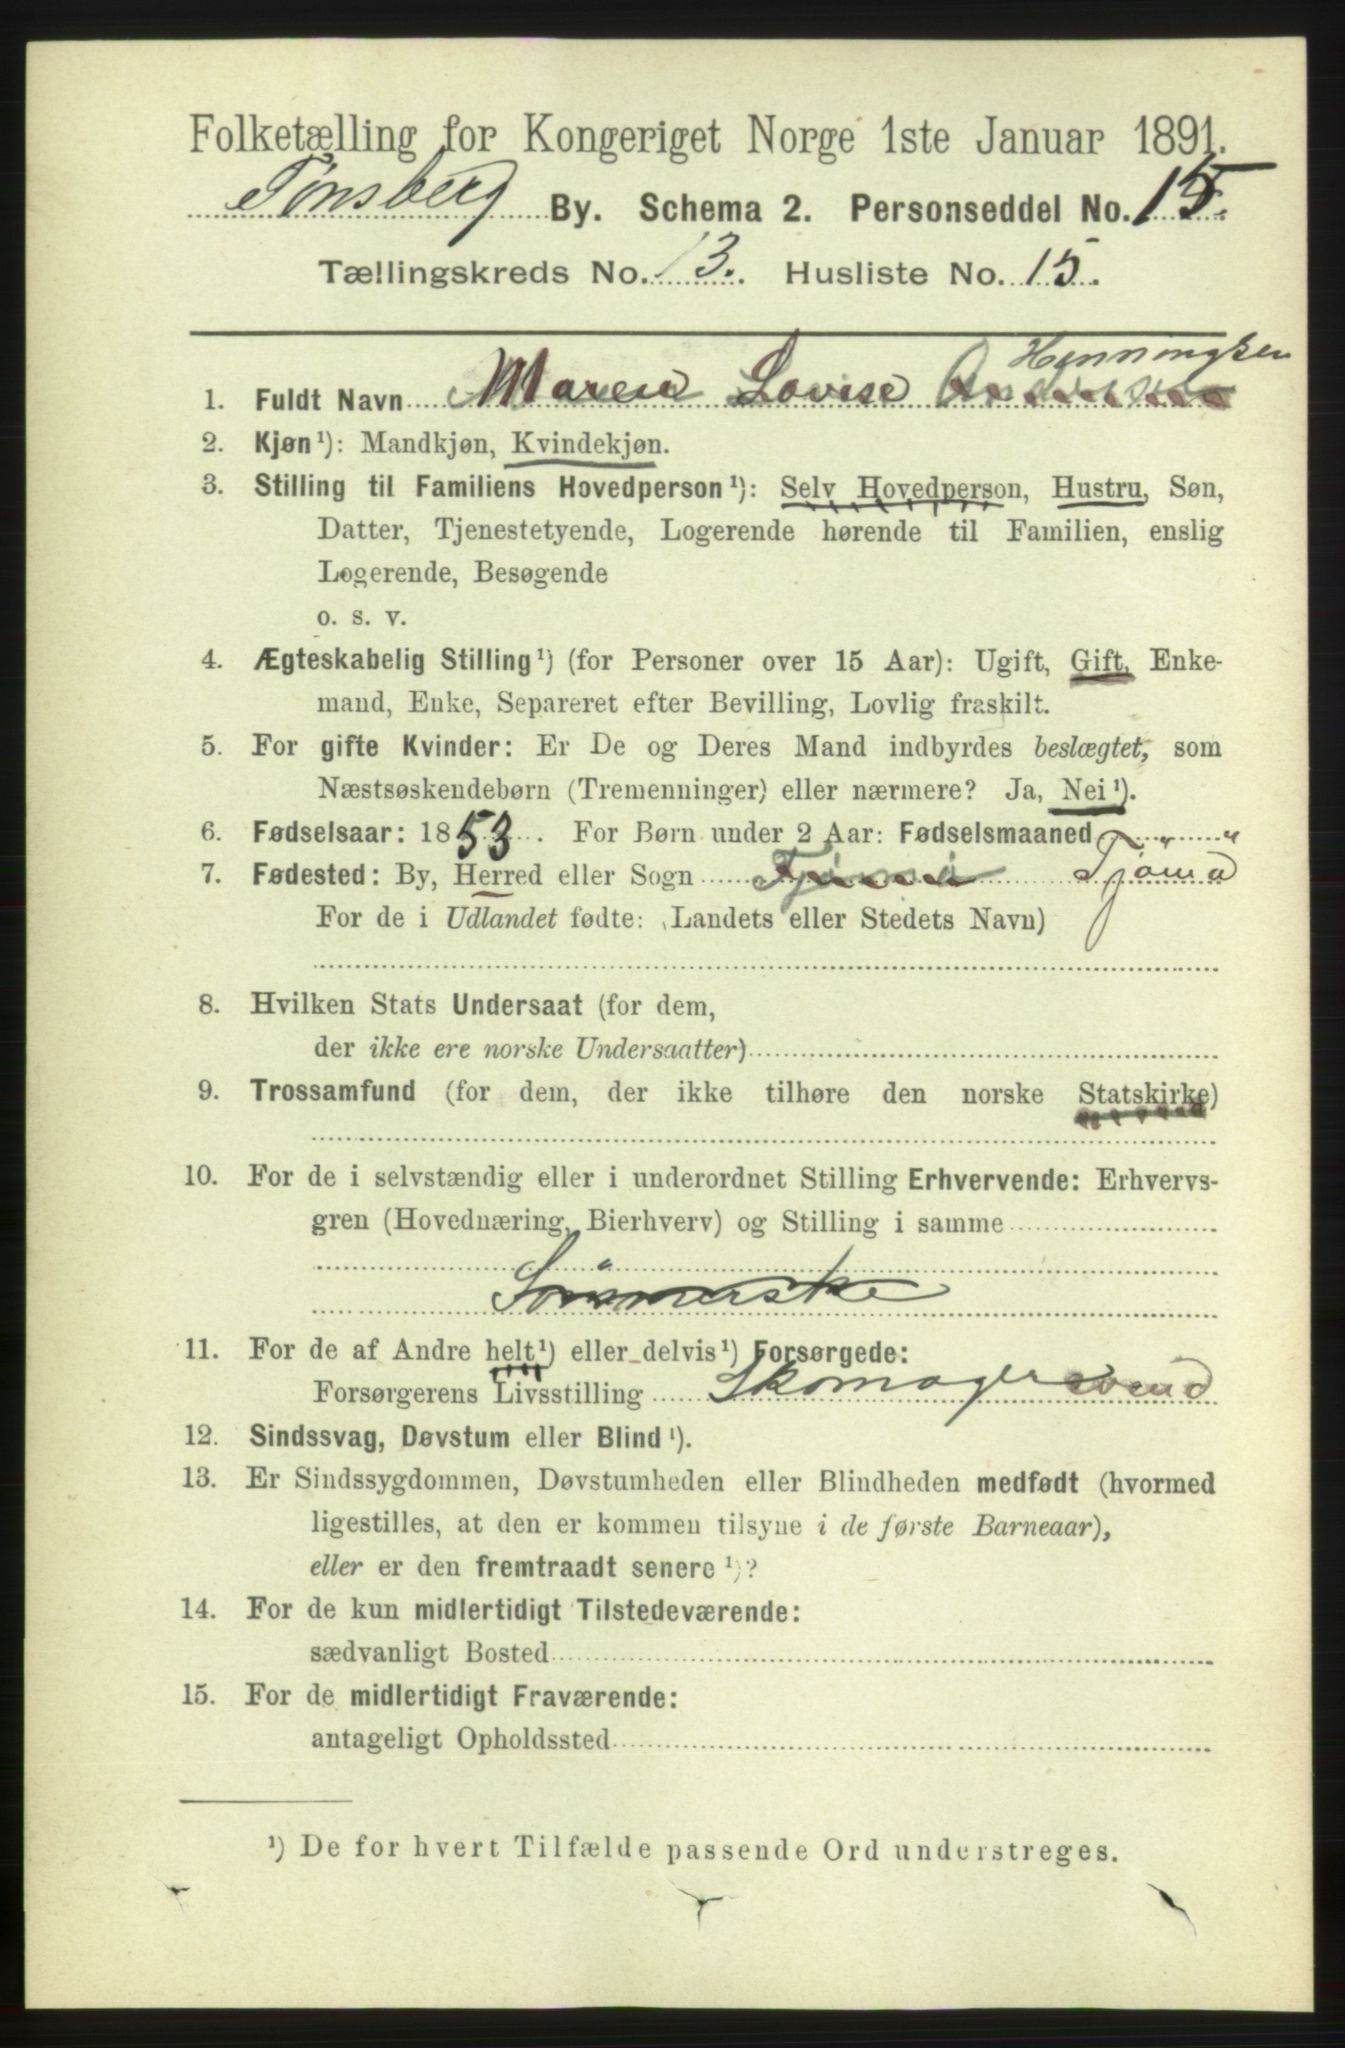 Folketælling for Kongeriget Norge 1ste Januar 1891.
Tønsberg By. Schema 2. Personseddel No. 15.
Tællingskreds No. 13. Husliste No. 15.
Henningsen
1. Fuldt Navn Maren Lovise
2. Kjøn¹): Mandkjøn, Kvindekjøn.
3. Stilling til Familiens Hovedperson¹): Selv Hovedperson, Hustru, Søn,
Datter, Tjenestetyende, Logerende hørende til Familien, enslig
Logerende, Besøgende
o. s. v.
4. Ægteskabelig Stilling¹) (for Personer over 15 Aar): Ugift, Gift, Enke-
mand, Enke, Separeret efter Bevilling, Lovlig fraskilt.
5. For gifte Kvinder: Er De og Deres Mand indbyrdes beslægtet, som
Næstsøskendebørn (Tremenninger) eller nærmere? Ja, Nei¹).
6. Fødselsaar: 1853. For Børn under 2 Aar: Fødselsmaaned
7. Fødested: By, Herred eller Sogn Tjømø
For de i Udlandet fødte: (Landets eller Stedets Navn)
8. Hvilken Stats Undersaat (for dem,
der ikke ere norske Undersaatter)
9. Trossamfund (for dem, der ikke tilhøre den norske Statskirke)
10. For de i selvstændig eller i underordnet Stilling Erhvervende: Erhvervs-
gren (Hovednæring, Bierhverv) og Stilling i samme
11. For de af Andre helt¹) eller delvis¹) Forsørgede:
Forsørgerens Livsstilling Skomagersvend
12. Sindssvag, Døvstum eller Blind¹).
13. Er Sindssygdommen, Døvstumheden eller Blindheden medfødt (hvormed
ligestilles, at den er kommen tilsyne i de første Barneaar),
eller er den fremtraadt senere¹)?
14. For de kun midlertidigt Tilstedeværende:
sædvanligt Bosted
15. For de midlertidigt Fraværende:
antageligt Opholdssted
¹) De for hvert Tilfælde passende Ord understreges.